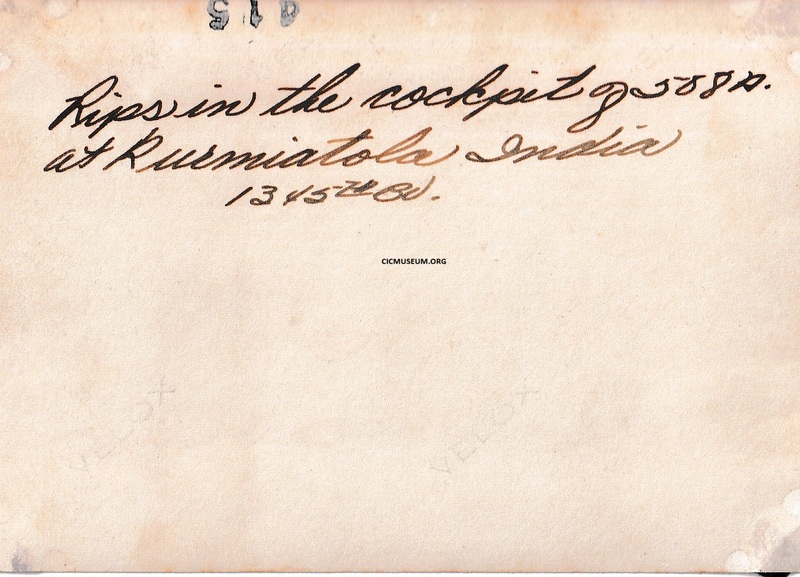 Rips in the cockpit of 508 
at Kurmiatola India
1345TH BU.
CICMUSEUM.ORG
VELOX VELOX